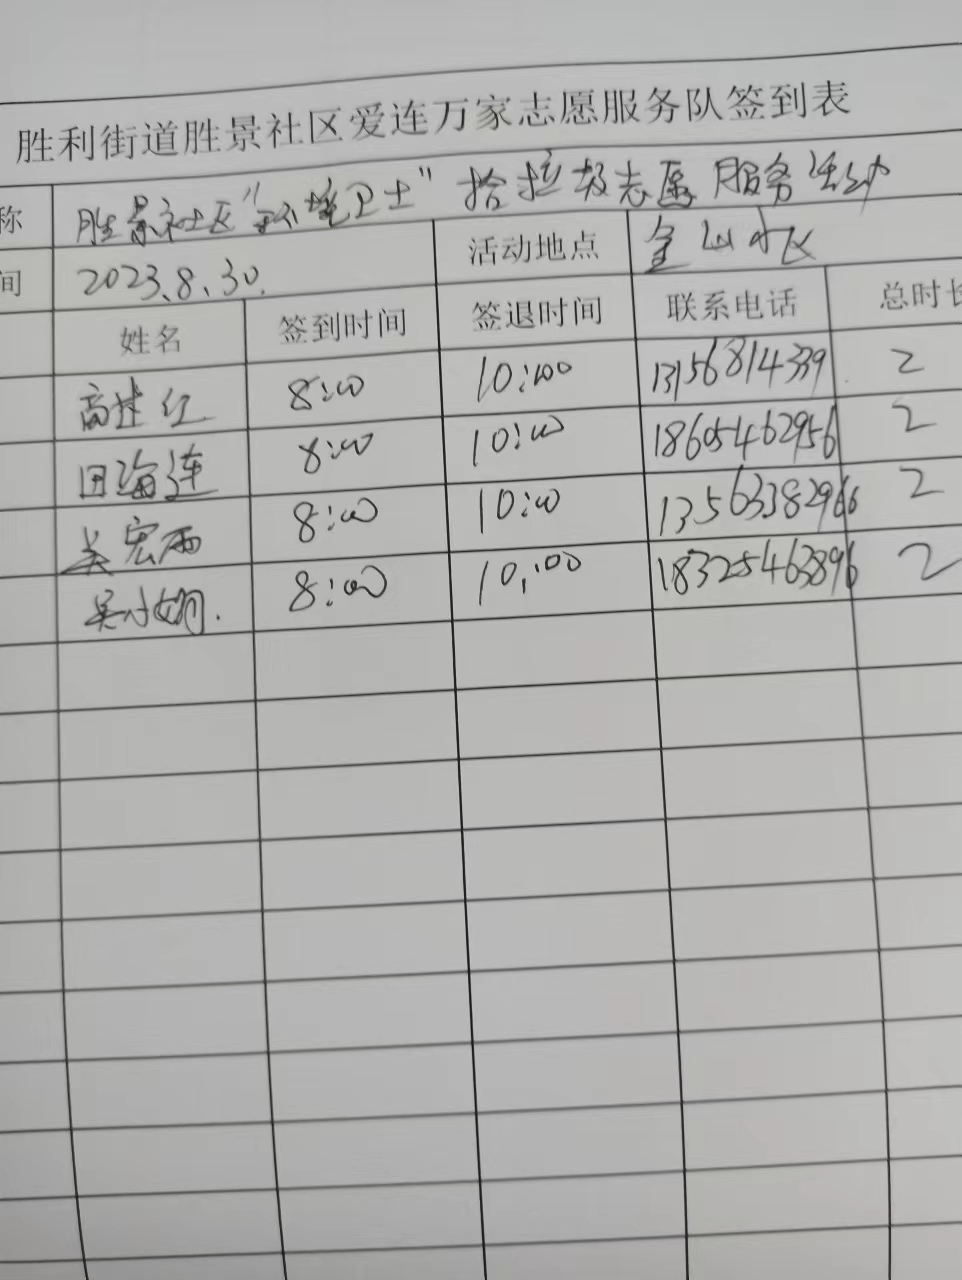 胜利街道胜景社区爱连万家志愿服务队签到表
称 胜景社区“环境卫士”捡垃圾志愿服务活动
间 2023.8.30. 活动地点 金山小区
姓名 签到时间 签退时间 联系电话 总时长
高建红 8:00 10:00 13156814339 2
田海连 8:00 10:00 18605462956 2
吴宏雨 8:00 10:00 13563382966 2
吴小娟. 8:00 10:00 18325463896 2